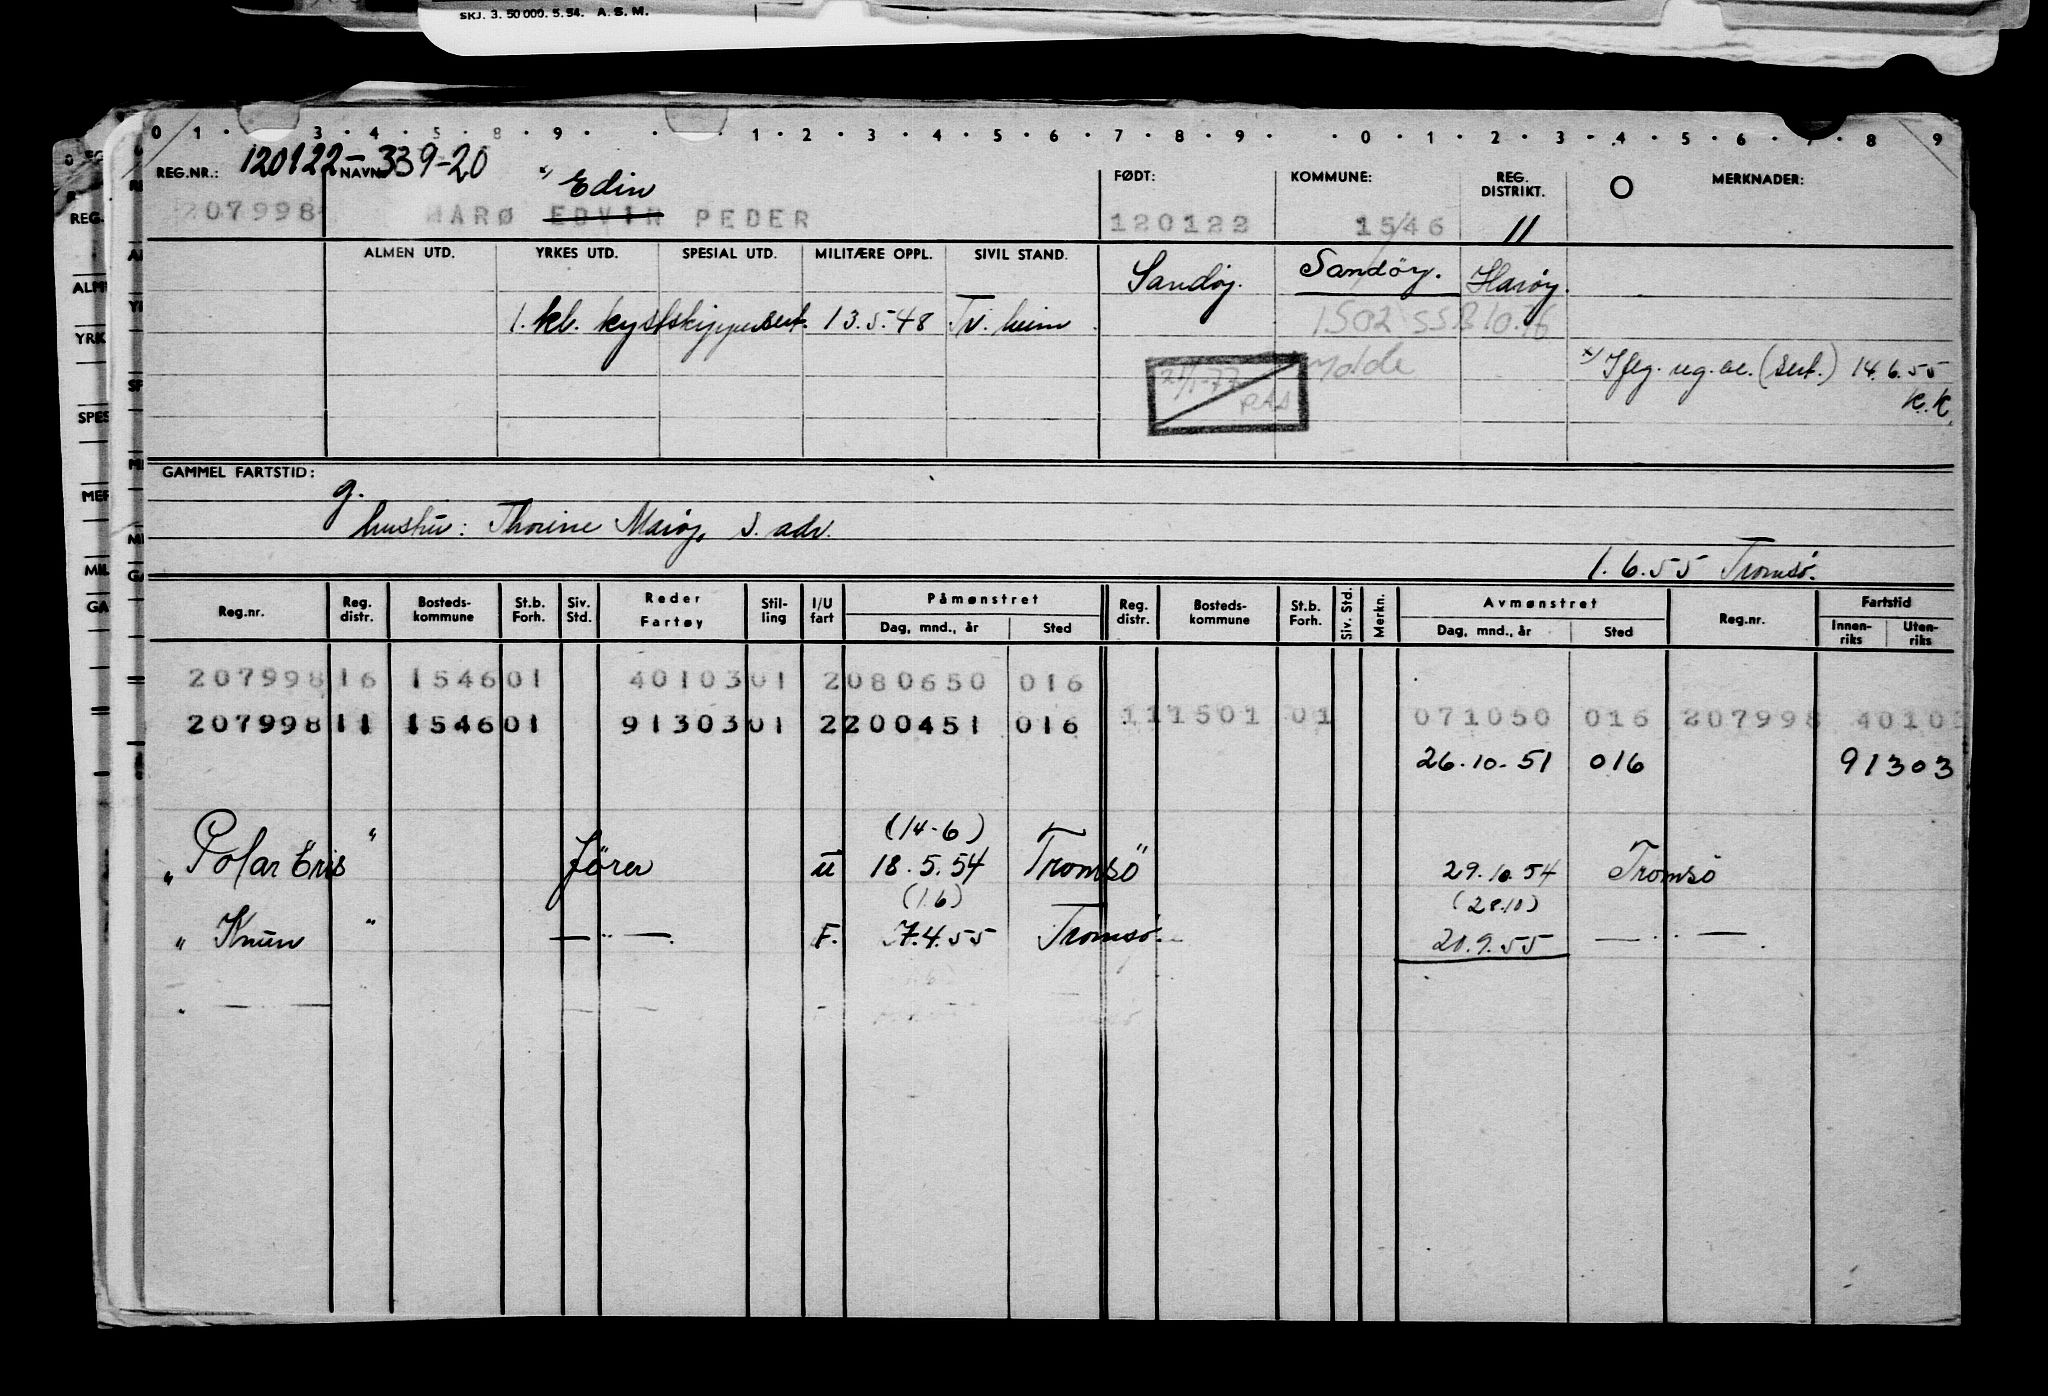 SKJ. 3. 50 000. 5. 54. A. S. M.
0 1 · 3 · 4 · 5 · 8 · 9 · · · 1 · 2 · 3 · 4 · 5 · 6 · 7 · 8 · 9 · · 0 · 1 · 2 · 3 · 4 · 5 · 6 · 7 · 8 · 9
REG.NR.: 120122-339-20 NAVN: x) Edin FØDT: KOMMUNE: REG. DISTRIKT. MERKNADER:
207998 MARØ EDVIN PEDER 120122 15/46 11
ALMEN UTD. YRKES UTD. SPESIAL UTD. MILITÆRE OPPL. SIVIL STAND.
Sandøy. Sandöy. Harøy.
1. kl. kystskippersert. 13.5.48 Tv. heim 1502 SSB 10.76
21/1-77 Molde x) Ifлg. reg. (sert.) 14.6.55
K.K.
GAMMEL FARTSTID:
g.
hustru: Thorine Marøy, s. adr.
1.6.55 Tromsø.
Reg.nr. Reg. distr. Bosteds-kommune St.b. Forh. Siv. Std. Reder Fartøy Stil-ling I/U fart Påmønstret Dag, mnd., år Sted Reg. distr. Bosteds-kommune St.b. Forh. Siv. Std. Merkn. Avmønstret Dag, mnd., år Sted Reg.nr. Fartstid Innen-riks Uten-riks
207998 16 1546 01 40103 01 2 080650 016
207998 11 1546 01 91303 01 2 200451 016 11 1501 01 071050 016 207998 4010
26.10.51 016 91303
(14-6)
" Polar Eris " fører u 18.5.54 Tromsö 29.10.54 Tromsö
(1.6) (28.10)
" Knun " — " — F. 7.4.55 Tromsø. 20.9.55 — " —